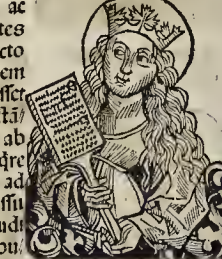 ac
tes
cto
em
sset
stā/
ab
q̄re
ad
ssu
undi
ou/